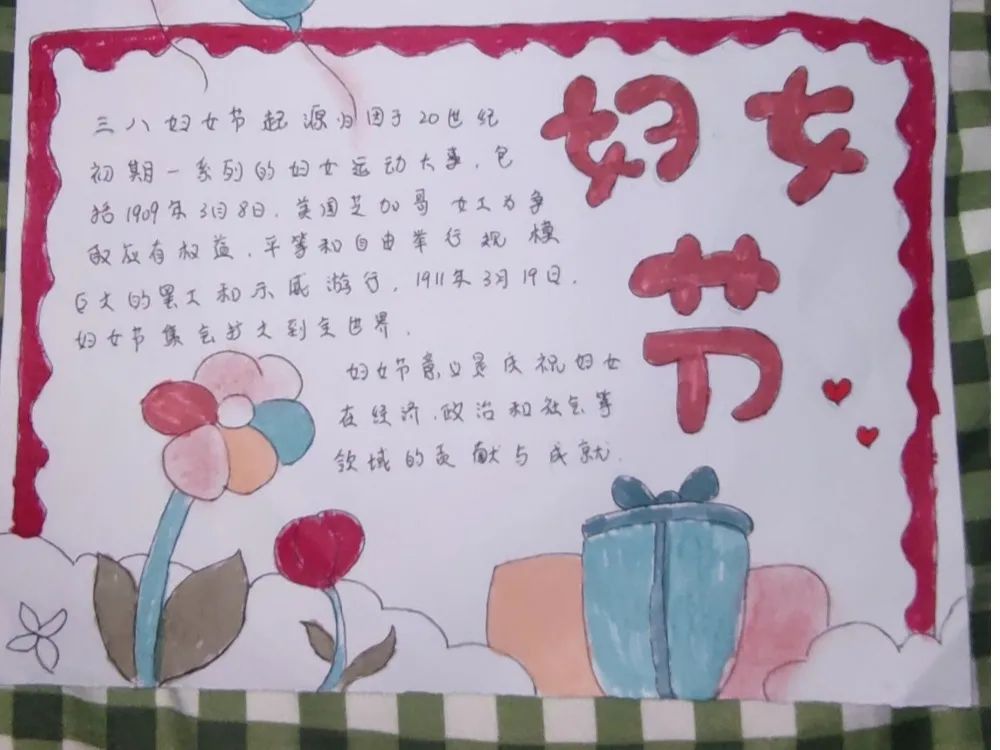 妇女
节
三八妇女节起源归因于20世纪
初期一系列的妇女运动大事,包
括1909年3月8日,美国芝加哥女工为争
取应有权益,平等和自由举行规模
巨大的罢工和示威游行,1911年3月19日,
妇女节集会扩大到全世界.
妇女节意义是庆祝妇女
在经济,政治和社会等
领域的贡献与成就.